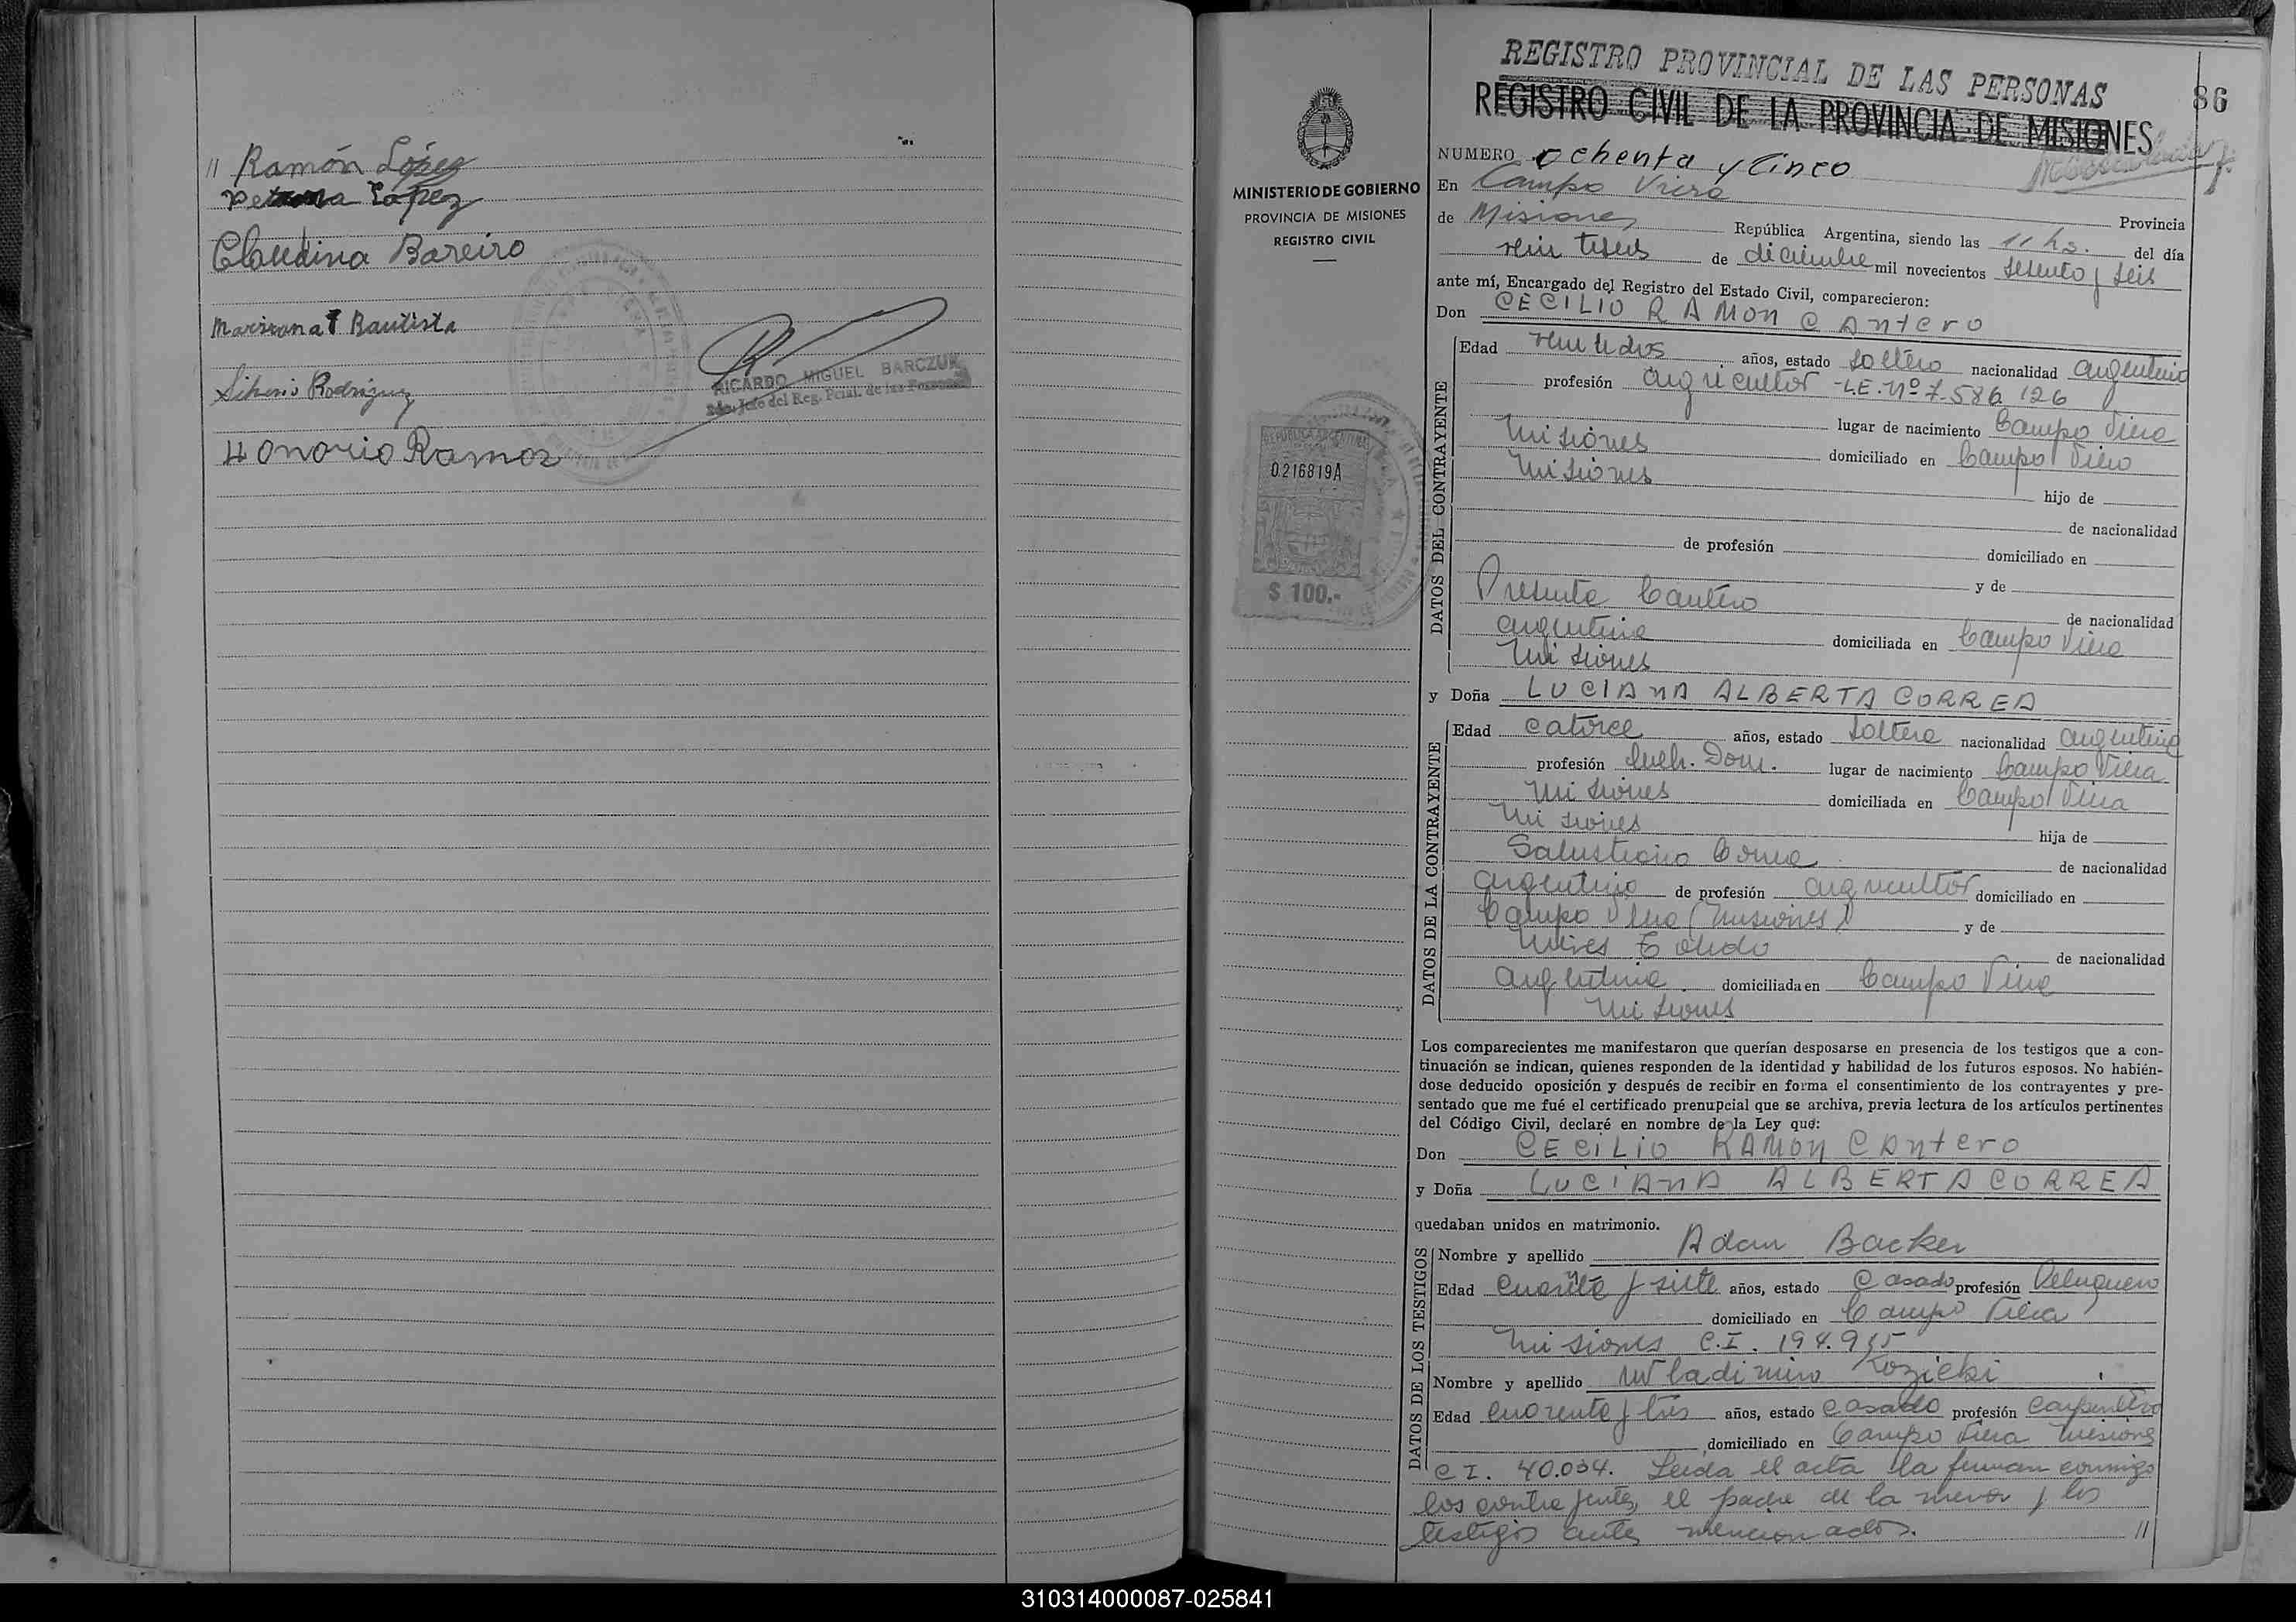 // Ramón López
Petrona López
Claudina Bareiro
Marirana T Bautista
Liberio Rodriguez
Honorio Ramos
RICARDO MIGUEL BARCZUK
2do. Jefe del Reg. Pcial. de las Personas
MINISTERIO DE GOBIERNO
PROVINCIA DE MISIONES
REGISTRO CIVIL
REPUBLICA ARGENTINA
0.216819A
$ 100.-
REGISTRO PROVINCIAL DE LAS PERSONAS
86
REGISTRO CIVIL DE LA PROVINCIA DE MISIONES
NUMERO ochenta y Cinco
En Campo Viera Provincia
de Misiones República Argentina, siendo las 11 hs. del día
de diciembre mil novecientos setenta y seis
ante mí, Encargado del Registro del Estado Civil, comparecieron:
Don CECILIO RAMON CANTERO
DATOS DEL CONTRAYENTE
Edad veintidos años, estado soltero nacionalidad argentino
profesión agricultor L.E. Nº 7.586.126
lugar de nacimiento Campo Viera
Misiones domiciliado en Campo Viera
Misiones hijo de
de nacionalidad
de profesión domiciliado en
y de
Presenta Cantero de nacionalidad
argentina domiciliada en Campo Viera
Misiones
y Doña LUCIANA ALBERTA CORREA
DATOS DE LA CONTRAYENTE
Edad catorce años, estado soltera nacionalidad argentina
profesión Queh. Dom. lugar de nacimiento Campo Viera
Misiones domiciliada en Campo Viera
Misiones hija de
Salustiano Correa de nacionalidad
argentino de profesión agricultor domiciliado en
Campo Viera (Misiones) y de
Nieves Toledo de nacionalidad
argentina domiciliada en Campo Viera
Misiones
Los comparecientes me manifestaron que querían desposarse en presencia de los testigos que a con-
tinuación se indican, quienes responden de la identidad y habilidad de los futuros esposos. No habién-
dose deducido oposición y después de recibir en forma el consentimiento de los contrayentes y pre-
sentado que me fué el certificado prenupcial que se archiva, previa lectura de los artículos pertinentes
del Código Civil, declaré en nombre de la Ley que:
Don CECILIO RAMON CANTERO
y Doña LUCIANA ALBERTA CORREA
quedaban unidos en matrimonio.
DATOS DE LOS TESTIGOS
Nombre y apellido Adan Backer
Edad cuarenta y siete años, estado casado profesión Peluquero
domiciliado en Campo Viera
Misiones C.I. 194.955
Nombre y apellido Wladimiro Kozicki
Edad cuarenta y tres años, estado casado profesión carpintero
domiciliado en Campo Viera Misiones
C.I. 40.034. Leida el acta la firman conmigo
los contrayentes, el padre de la menor y los
testigos antes mencionados. //
310314000087-025841